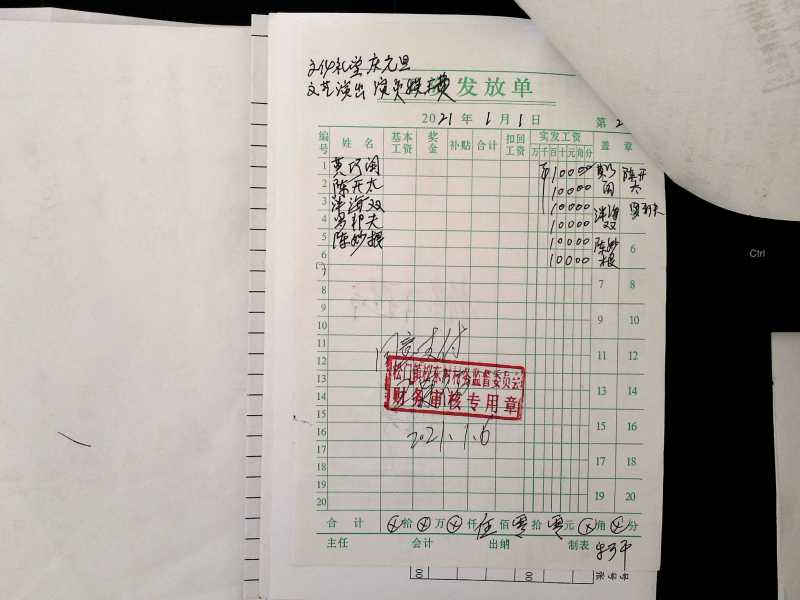 文化礼堂庆元旦
文艺演出演员误工费
发放单
2021年1月1日 第2
编号 姓名 基本工资 奖金 补贴 合计 扣回工资 实发工资 盖章
万千百十元角分
1 黄 10000
2 陈开太 10000
3 海双 10000
4 邦夫 10000
5 陈妙根 10000
6 10000 6
7 7 8
8
9 9 10
10
11 11 12
12
13 13 14
14
15 15 16
16
17 17 18
18
19 19 20
20
同意支付
村务监督委员会
财务审核专用章
2021.1.6
合计 ⊗拾⊗万⊗仟伍佰零拾零元⊗角⊗分
主任 会计 出纳 制表
Ctrl